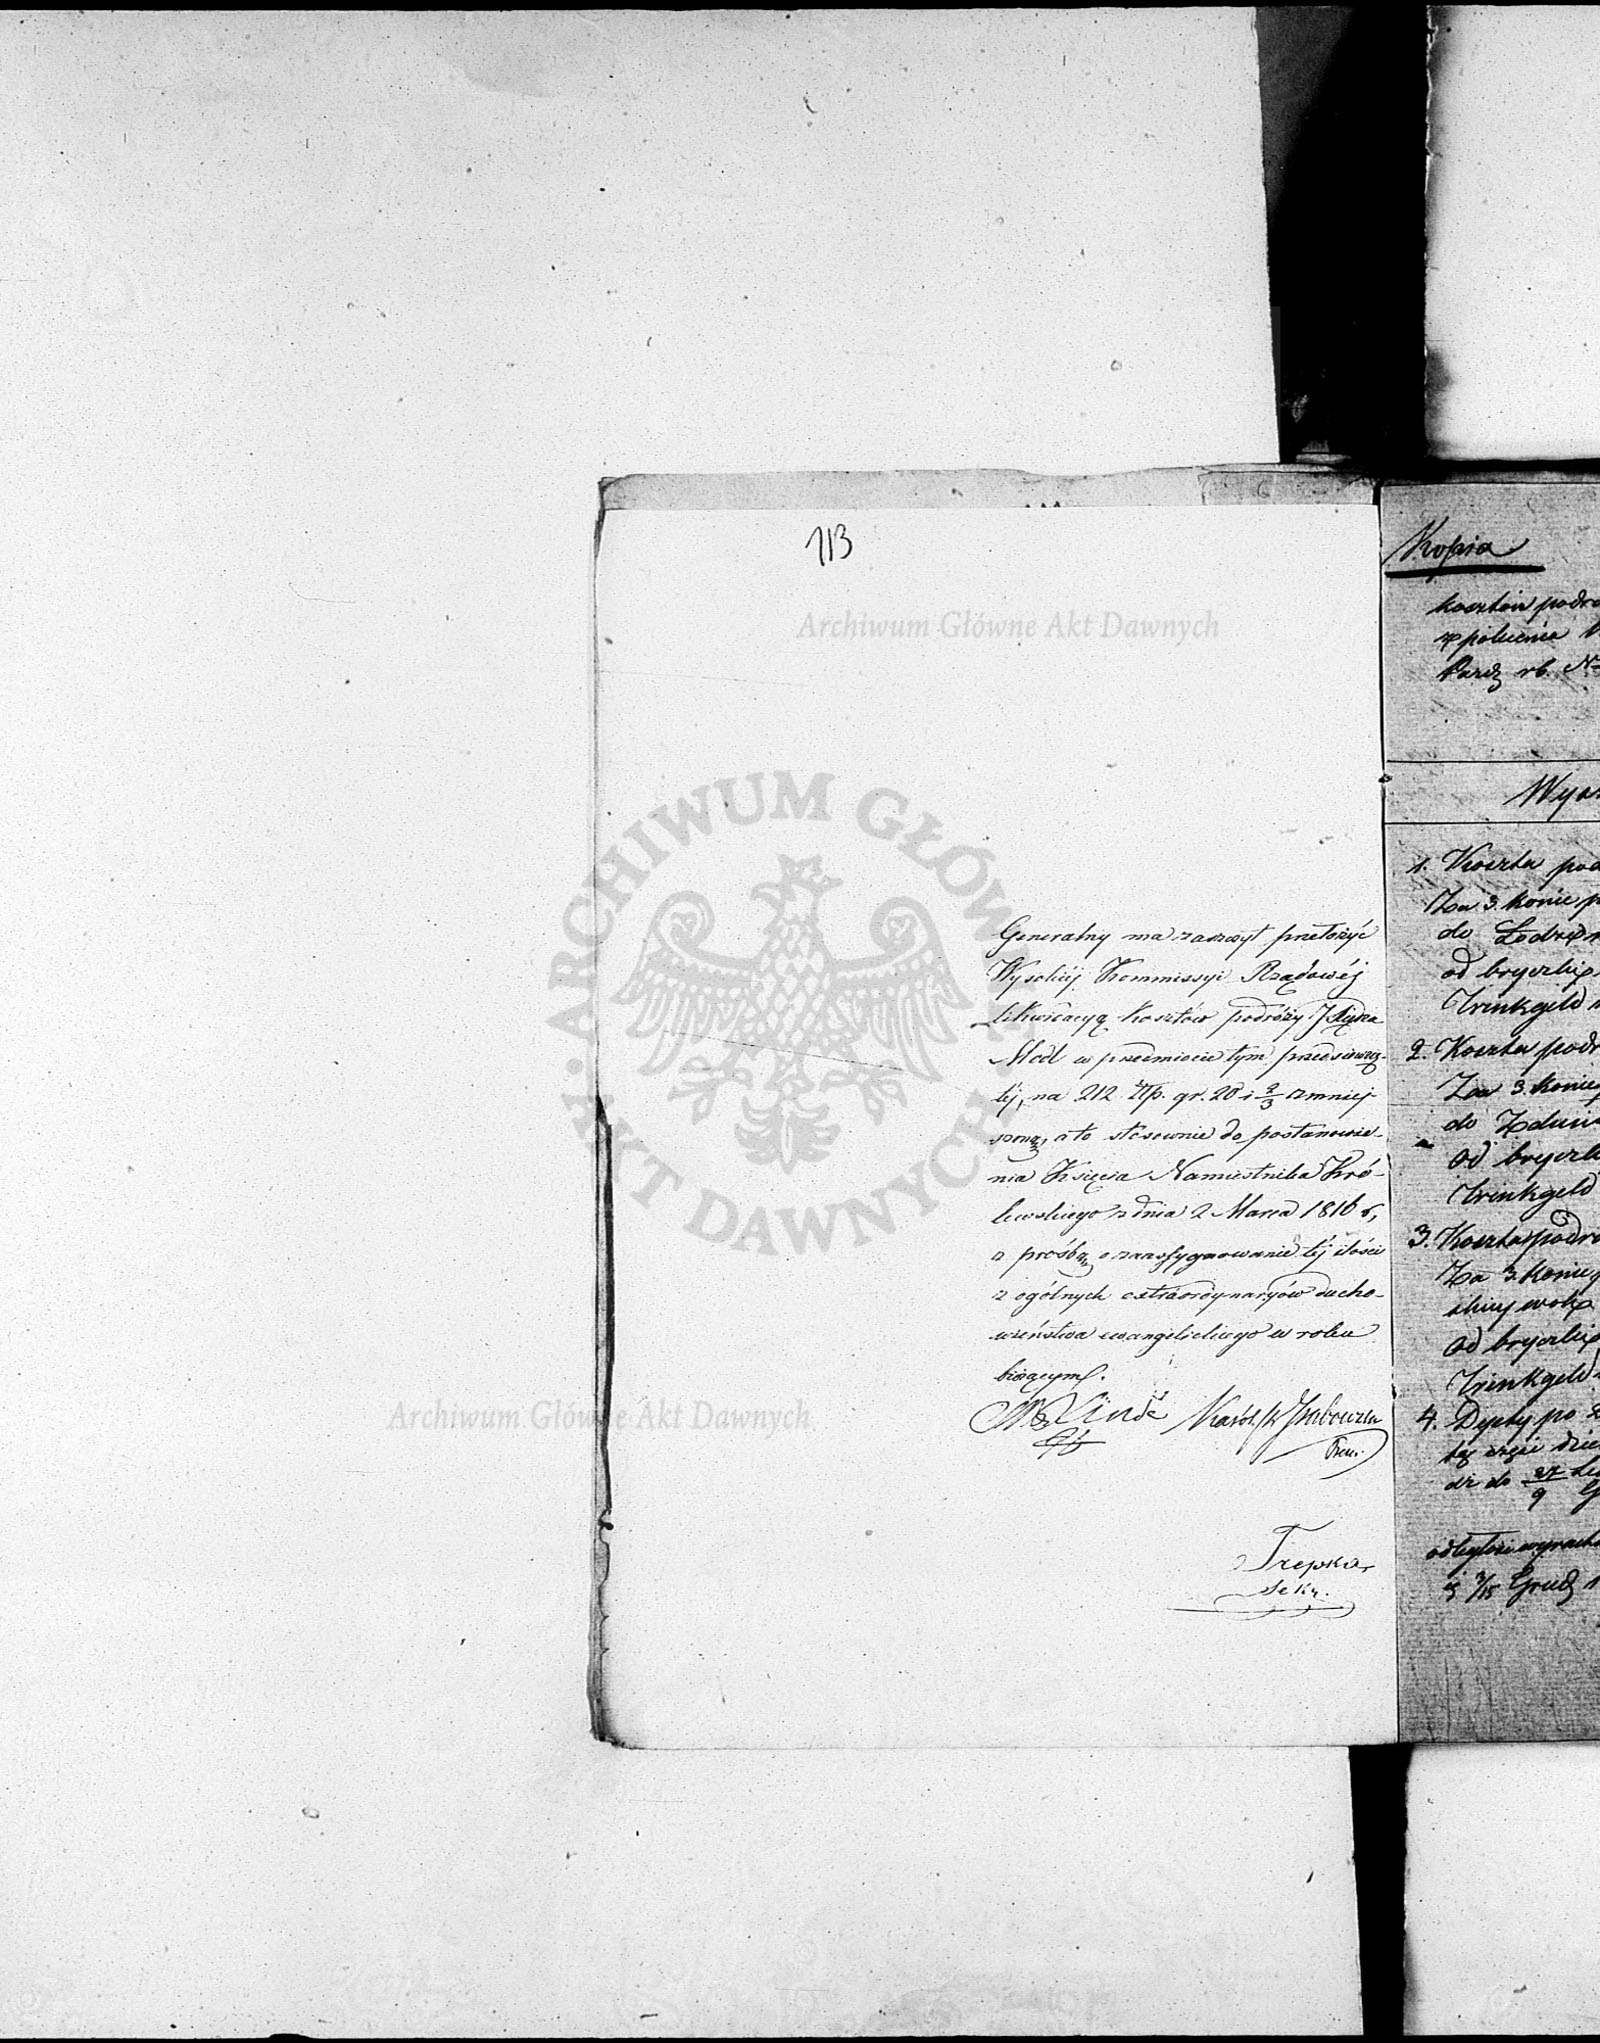 113
Archiwum Główne Akt Dawnych
ARCHIWUM GŁÓWNE AKT DAWNYCH
Generalny ma zaszczyt przełożyć
Wysokiéj Kommissyi Rządowéj
likwidacyą kosztów podróży JXiędza
Modl w przedmiocie tym przedsięwzię-
téj, na 212 Złp. gr. 20 i 2/3 zmniej-
szoną, a to stósownie do postanowie-
nia Księcia Namiestnika Kró-
lewskiego z dnia 2 Marca 1816 r,
z prośbą o zaassygnowanie téj ilości
z ogólnych extraordynaryów ducho-
wieństwa ewangelickiego w roku
bieżącym.
Linde Karól
Archiwum Główne Akt Dawnych
Trepka
Sekr.
Kopia
kosztów podró
z polecenia
Paźdz rb. N
Wys
1. Koszta pod
Za 3. konie p
do Łodzi
od bryczki
Trinkgeld
2. Koszta podr
Za 3. konie
do Zduń
od bryczk
Trinkgeld
3. Koszta podró
Za 3. konie
od bryczki
Trinkgeld
4. Dyety po
tą część dzie
dz do 27/9
i 3/15 Grud